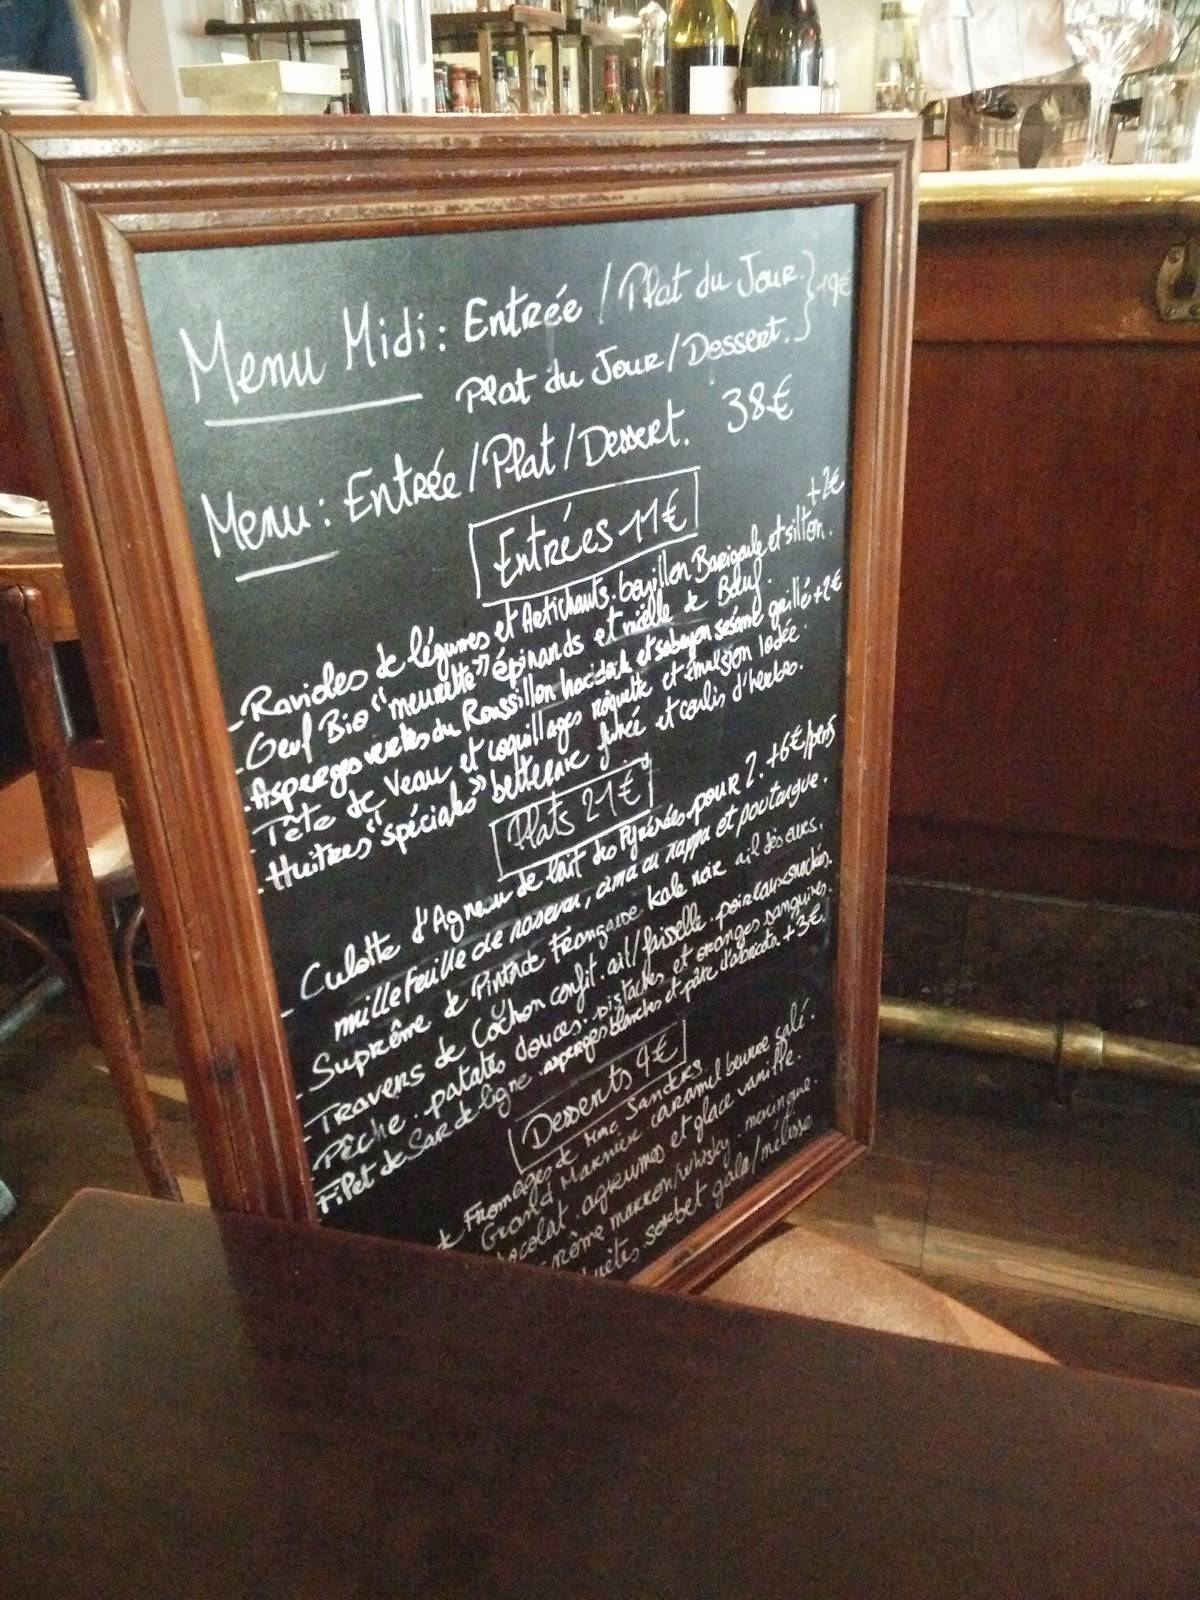 Menu Midi : Entrée / Plat du Jour. } 19€
Plat du Jour / Dessert.
Menu : Entrée / Plat / Dessert. 38€
Entrées 11€
+2€
- Ravioles de légumes et Artichauts. bouillon Barigoule et
- Oeuf Bio "meurette" épinards et moëlle de Bœuf.
- Asperges vertes du Roussillon haddock et sabayon sésame grillé +2€
- Tête de Veau et coquillages roquette et émulsion iodée.
- Huitres "spéciales" betterave fumée et coulis d'herbes.
Plats 21€
- Culotte d'Agneau de lait des Pyrénées. pour 2. +6€/pers
mille feuille de naseva, cima di rappa et poutargue.
- Suprême de Pintade Française kale noir ail des ours.
- Travers de Cochon confit. ail/faisselle. poireaux snackés.
- Pêche . patates douces. pistaches et oranges sanguines.
- Filet de Sar de ligne. asperges blanches et pâte d'abricots. +3€.
Desserts 9€
Fromages de Mme Sanders
Grand Marnier. caramel beurre salé.
chocolat. agrumes et glace vanille.
crème marron/whisky. meringue.
sorbet gala/mélisse